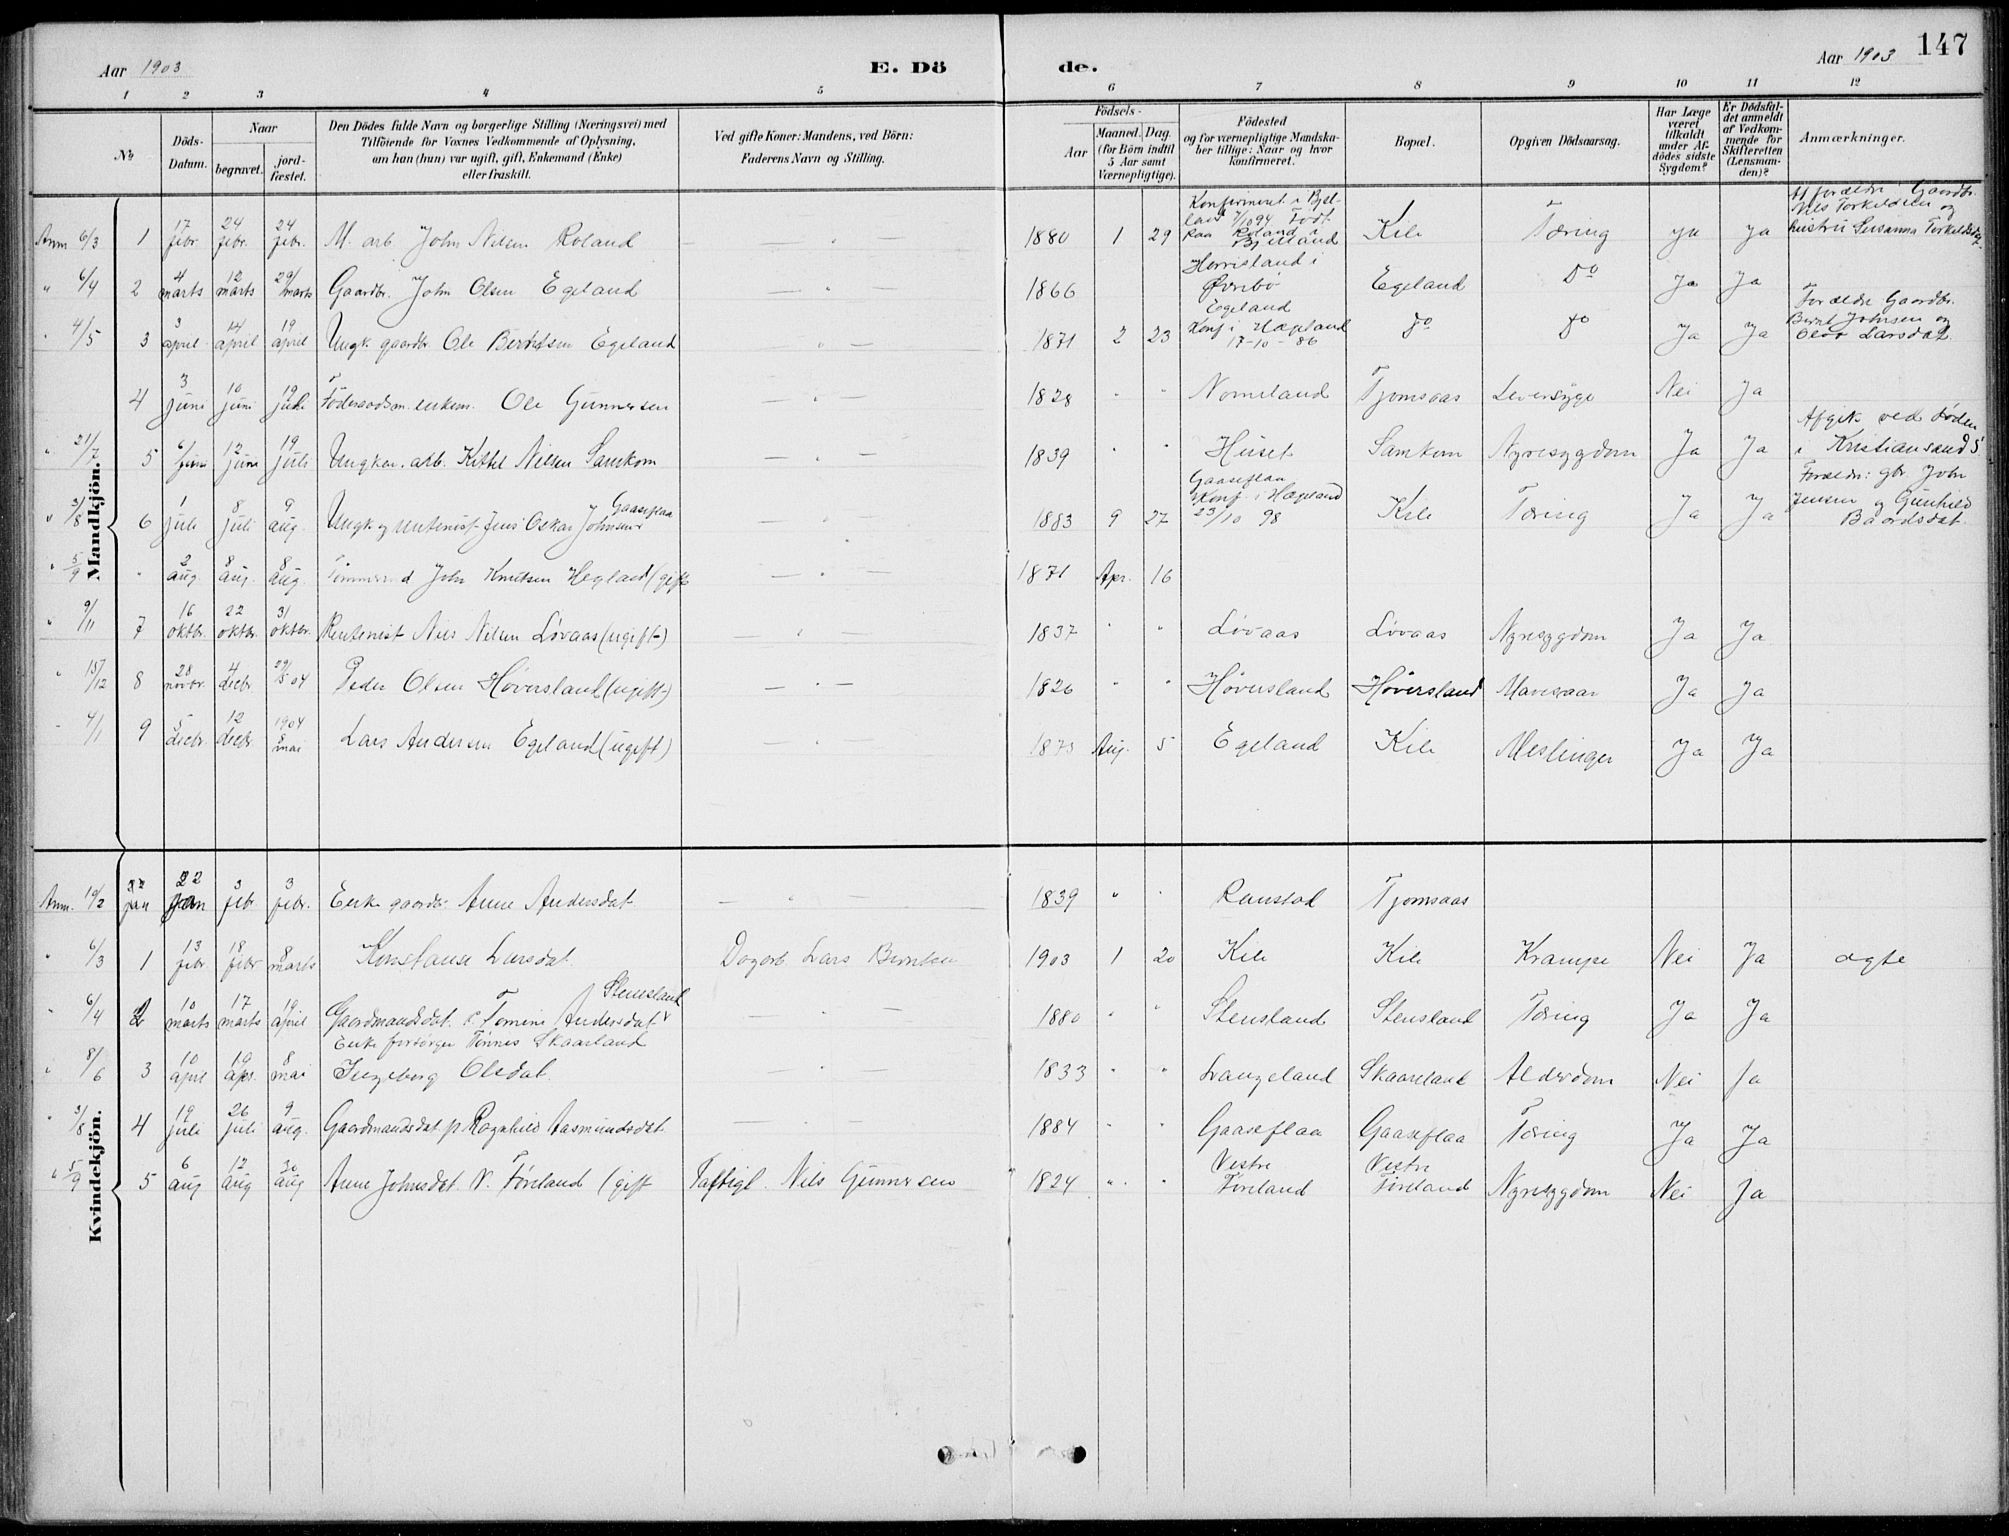 Aar 1903 E. Dö de. Aar 1903 147
1 2 3 4 5 6 7 8 9 10 11 12
No Döds-Datum. Naar begravet. jord-fæstet. Den Dödes fulde Navn og borgerlige Stilling (Næringsvei) med Tilföiende for Voxnes Vedkommende af Oplysning, om han (hun) var ugift, gift, Enkemand (Enke) eller fraskilt. Ved gifte Koner: Mandens, ved Börn: Faderens Navn og Stilling. Födsels- Aar Maaned. Dag. (for Börn indtil 5 Aar samt Værnepligtige). Födested og for værnepligtige Mandska-ber tillige: Naar og hvor konfirmeret. Bopæl. Opgiven Dödsaarsag. Har Læge været tilkaldt under Af-dödes sidste Sygdom? Er Dödsfal-det anmeldt af Vedkom-mende for Skifteretten (Lensman-den)? Anmærkninger.
Mandkjön.
Anm 6/3 1 17 febr. 24 febr. 24 febr. M. arb. John Nilsen Roland — " — 1880 1 29 Konfirmeret i Bjel-land 7/10 94 Født paa Roland i Bjelland Kile Tæring ja ja Af forældre Gaardbr. Nils Torkildsen og hustru Susanna Torkildsdat.
" 6/4 2 4 marts 12 marts 29/ marts Gaardbr. John Olsen Egeland — " — 1866 Herrisland i Øvrebø Egeland Do Ja Ja
" 4/5 3 3 april 14 april 19 april Ungk. gaardbr. Ole Berntsen Egeland " — 1871 2 23 Egeland Konf i Hægeland 17-10-86 Do Do Ja Ja Forældre Gaardbr. Bernt Johnsen og Larsdat.
4 3 juni 10 juni 19 juli Föderaadsm. enkem. Ole Gunnersen — " — 1828 " " Nomeland Tjomsaas Leversyge Nei Ja
" 21/7 5 6/ juni 12 juni 19 juli Ungkar. arb. Kittel Nilsen Samkom — " — 1839 " Huset Samkom Nyresygdom Ja Ja Afgik ved døden i Kristiansand S
" 3/8 6 1 juli 8 juli 9 aug. Ungk og rentenist Jens Oskar Johnsen Gaaseflaa " 1883 9 27 Gaaseflaa Konf. i Hægeland 23/10 98 Kile Tæring Ja Ja Forældr: gbr John Jensen og Gunhild Baardsdat.
" 5/9 " 2 aug 8 aug. 8 aug. Tømmermd John Knutsen Hegland (gift — " — 1871 Apr. 16
" 9/11 7 16 oktbr. 22 oktbr. 31 oktbr. Rentenist Nils Nilsen Løvaas (ugift) " — 1837 " " Løvaas Løvaas Nyresygdom Ja Ja
" 15/12 8 28 novbr. 4 decbr Peder Olsen Høversland (ugift) — " — 1826 " " Høversland Høversland Mavesaar Ja Ja
" 4/1 9 5 decbr. 12 decbr. 1904 8 mai Lars Andersen Egeland (ugift) — " — 1873 Aug. 5 Egeland Kile Meslinger Ja Ja
Kvindekjön.
Anm. 19/2 22 jan 22 jan 3 febr 3 febr. Enke gaardbr Anne Andersdat — " — 1839 " " Ranstad Tjomsaas
" 6/3 1 13 febr 18 febr 8 marts Konstanse Larsdat Dagarb. Lars Berntsen 1903 1 20 Kile Kile Krampe Nei Ja ægte
" 6/4 2 10 marts 17 marts 19 april Gaardmandsdat. p. Tomine Andersdat Stensland — " — 1880 " " Stensland Stensland Tæring Ja Ja
" 8/6 3 10 april 19 apr. 8 mai Enke forsørger Tønnes Skaarland Ingeborg Olsdat — " — 1833 " " Langeland Skaareland Alderdom Nei Ja
" 3/8 4 19 juli 26 juli 9 aug. Gaardmandsdat p Ragnhild Aasmundsdat — " — 1884 " " Gaaseflaa Gaaseflaa Tæring Ja Ja
" 5/9 5 6 aug 12 aug 30 aug Anne Johnsdat. V. Føreland (gift Fattigl. Nils Gunnersen 1824 " " Vestre Føreland Vestre Føreland Nyresygdom Nei Ja